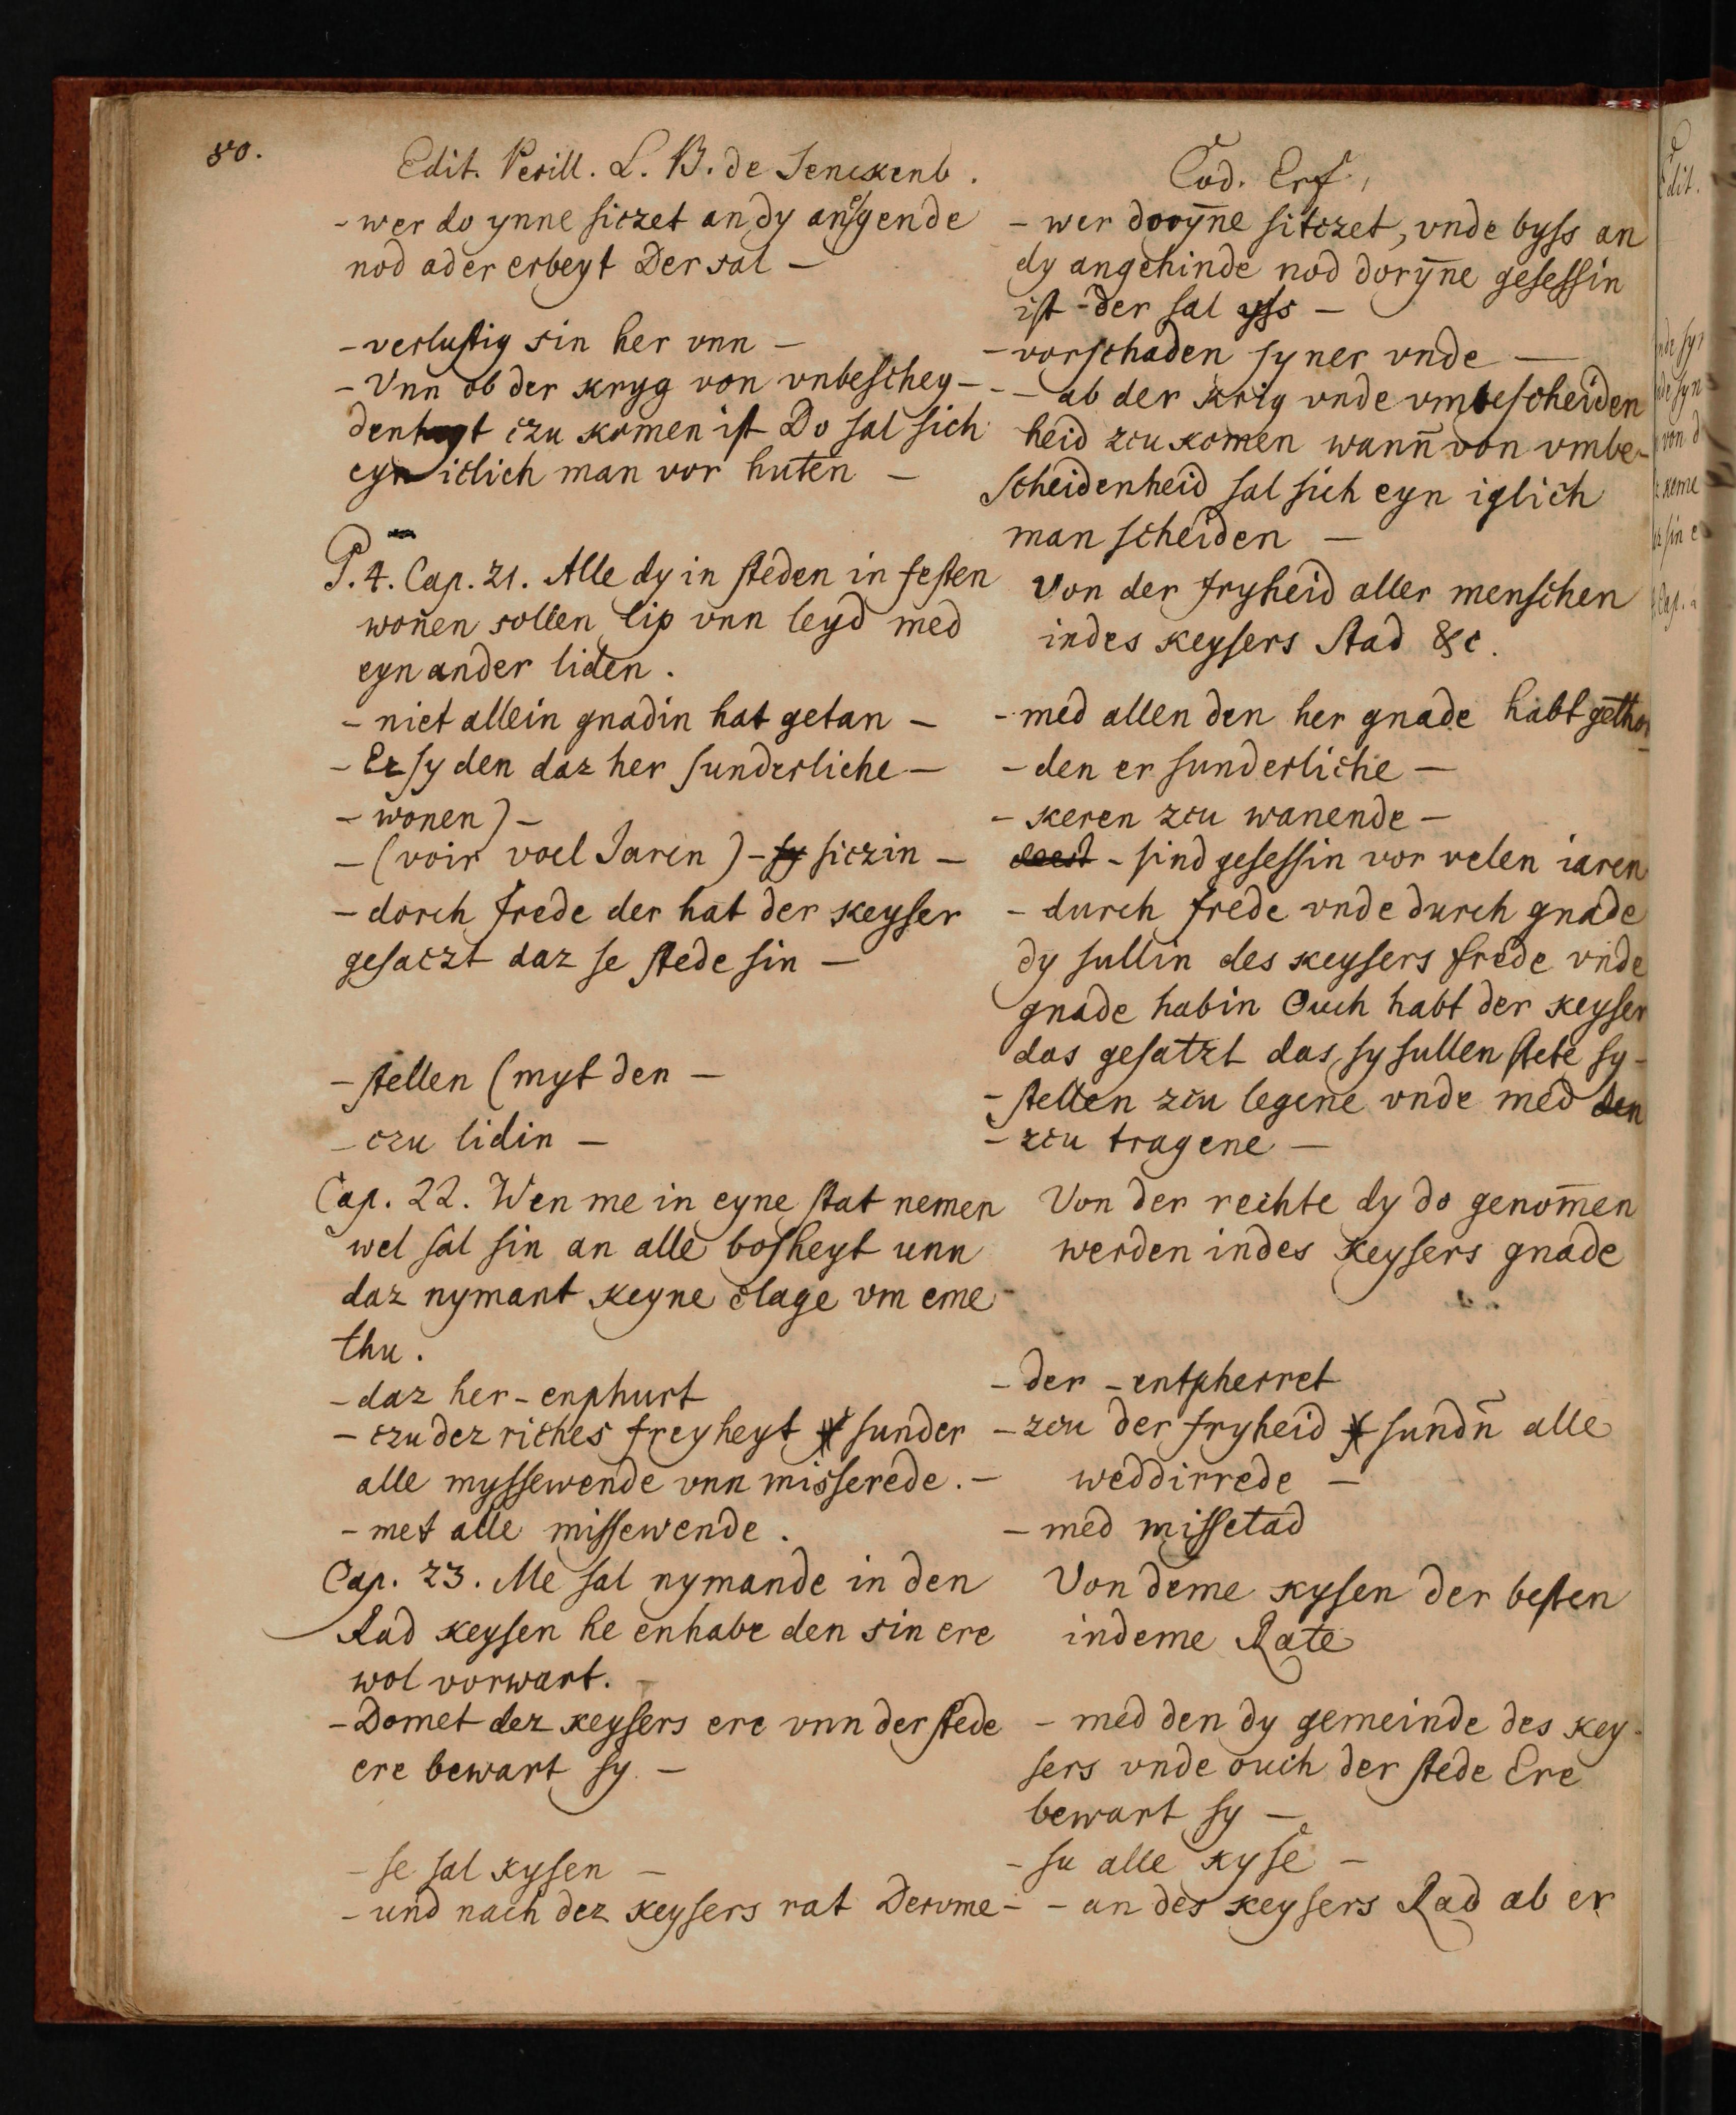 80.
Edit. Perill. L. B. de Senckenb.
- wer do ynne siczet an dy angende
nod ader erbeyt Der sal -
- verlustig sin her vnn -
- Vnn ob der kryg von vnbeschey-
denhayt czu komen ist Do sal sich
eyn iclich man vor huten -
P. 4. Cap. 21. Alle dy in steden in festen
wonen sollen lip vnn leyd med
eyn ander liden.
- niet allein gnadin hat getan -
- Ez sy den daz her sunderliche -
- wonen) -
- (voir voel Jaren) - siczin -
- dorch frede der hat der keyser
gesaczt daz se stede sin -
- stellen (myt den -
- czu lidin -
Cap. 22. Wen me in eyne stat nemen
wel sal sin an alle bosheyt unn
daz nymant keyne clage vm eme
thu.
- daz her - enphurt
- czu dez riches freyheyt sunder
alle myssewende vnn misserede. -
- met alle missewende.
Cap. 23. Me sal nymande in den
Rad keysen he enhabe den sin ere
wol vorwart.
- Domet dez keysers ere vnn der stede
ere bewart sy -
- se sal kysen -
- und nach dez keysers rat Dervme -
Cod. Erf.
- wer dorȳne sitczet, vnde byss an
dy angehinde nod dorȳne gesessin
ist - der sal yss -
- vorschaden syner vnde -
- ab der krig vnde vmbescheiden
heid zcu komen wann̄ von vmbe-
scheidenheid sal sich eyn iglich
man scheiden -
Von der fryheid aller menschen
indes keysers Stad &c.
- med allen den her gnade habt
- den er sunderliche -
- keren zcu wanende -
deest - sind gesessin vor velen iaren
- durch frede vnde durch gnade
dy sullin des keysers frede vnde
gnade habin Ouch habt der keyser
das gesatzt das sy sullen stete sy -
- stellen zcu legene vnde med den
- zcu tragene -
Von der rechte dy do genom̄en
werden indes keysers gnade
- der - entpherret
- zcu der fryheid sundn̄ alle
weddirrede -
- med missetad
Von deme kysen der besten
indeme Rate
- med den dy gemeinde des key-
sers vnde ouch der stede Ere
bewart sy -
- su alle kyse -
- an des keysers Rad ab er
Edit.